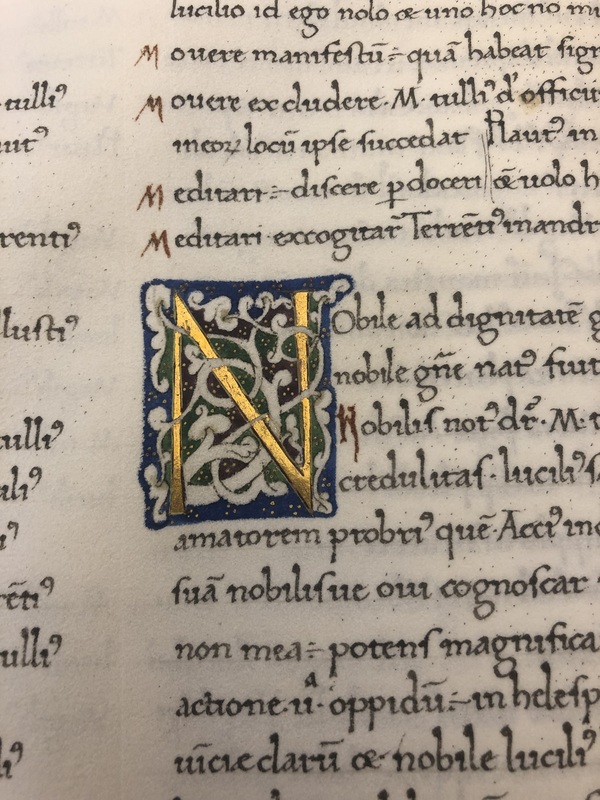 tulli⁹
aut⁹
renti⁹
llusti⁹
tulli⁹
ili⁹
i⁹
rēti⁹
ulli⁹
li⁹
lucilio id ego nolo & uno hoc no mi
Mouere manifestū÷ quā habeat sign
Mouere excludere · M · tulli⁹ d' officii
ineoꝝ locū ipse succedat Plaut⁹ in
Meditari÷ discere ꝑdoceri &̄ uolo h
Meditari excogitar̄ Terrēti⁹ in andr
NObile ad dignitatē g
nobile gn̄e nat⁹ fiut
Nobilis not⁹ dr̄ · M · t
credulitas · lucili⁹ s
amatorem probri⁹ quē · Acci⁹ in
suā nobilisue oui cognoscar
non mea÷ potens magnifica
actione · ū · oppidū÷ in helesp
uīcie clarū & nobile lucili⁹